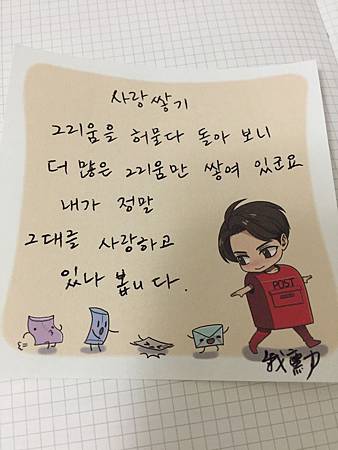 사랑쌓기
그리움을 허물다 돌아 보니
더 많은 그리움만 쌓여 있군요
내가 정말
그대를 사랑하고
있나 봅니다.
POST